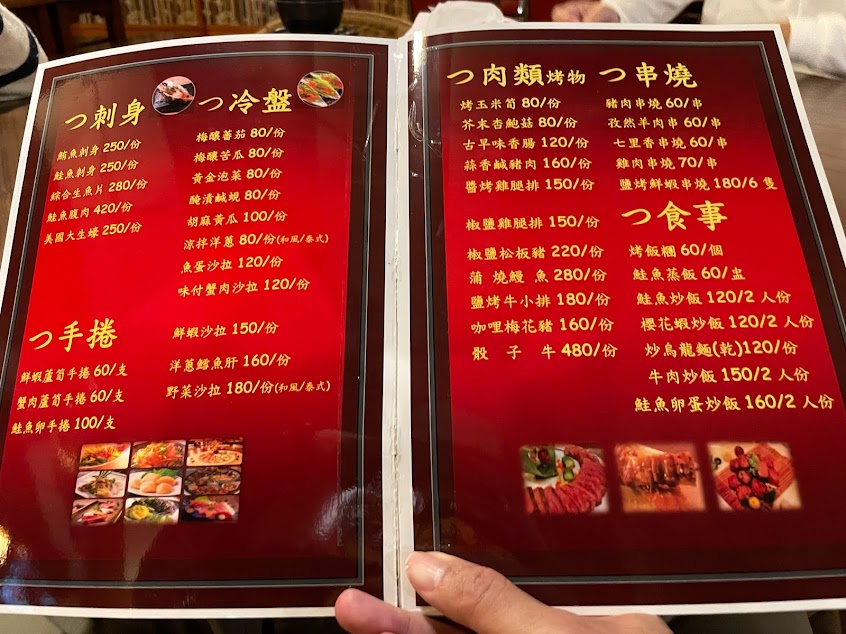 つ刺身
鮪魚刺身 250/份
鮭魚刺身 250/份
綜合生魚片 280/份
鮭魚腹肉 420/份
美國大生蠔 250/份
つ冷盤
梅釀蕃茄 80/份
梅釀苦瓜 80/份
黃金泡菜 80/份
醃漬鹹蜆 80/份
胡麻黃瓜 100/份
涼拌洋蔥 80/份(和風/泰式)
魚蛋沙拉 120/份
味付蟹肉沙拉 120/份
鮮蝦沙拉 150/份
洋蔥鱈魚肝 160/份
野菜沙拉 180/份(和風/泰式)
つ手捲
鮮蝦蘆筍手捲 60/支
蟹肉蘆筍手捲 60/支
鮭魚卵手捲 100/支
つ肉類烤物
烤玉米筍 80/份
芥末杏鮑菇 80/份
古早味香腸 120/份
蒜香鹹豬肉 160/份
醬烤雞腿排 150/份
椒鹽雞腿排 150/份
椒鹽松板豬 220/份
蒲燒鰻魚 280/份
鹽烤牛小排 180/份
咖哩梅花豬 160/份
骰子牛 480/份
つ串燒
豬肉串燒 60/串
孜然羊肉串 60/串
七里香串燒 60/串
雞肉串燒 70/串
鹽烤鮮蝦串燒 180/6 隻
つ食事
烤飯糰 60/個
鮭魚蒸飯 60/盅
鮭魚炒飯 120/2 人份
櫻花蝦炒飯 120/2 人份
炒烏龍麵(乾)120/份
牛肉炒飯 150/2 人份
鮭魚卵蛋炒飯 160/2 人份